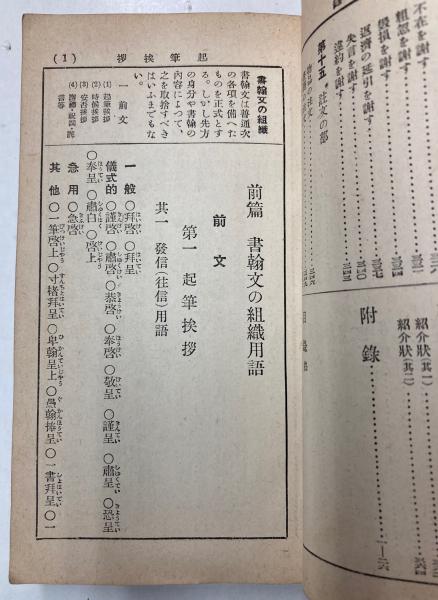 不在を謝す
粗忽を謝す
毀損を謝す
返濟の延引を謝す
失言を謝す
違約を謝す
第十五 註文の部
附錄
紹介狀(其一)
紹介狀(其二)
(1) 起筆挨拶
書翰文の組織
書翰文は普通次
の各項を備へた
ものを正式とす
る。しかし先方
の身分や書翰の
内容によつて、
之を取捨すべき
はいふまでもな
い。
一 前文
(1) 起筆挨拶
(2) 時候挨拶
(3) 安否挨拶
前篇 書翰文の組織用語
前文
第一 起筆挨拶
其一 發信(往信)用語
一般 ○拜啓 ○拜呈
儀式的 ○謹啓 ○肅啓 ○恭啓 ○奉啓 ○敬呈 ○謹呈 ○肅呈 ○恐呈
○奉呈 ○肅白 ○啓上
急用 ○急啓
其他 ○一筆啓上 ○寸楮拜呈 ○卑翰呈上 ○愚翰捧呈 ○一書拜呈 ○一